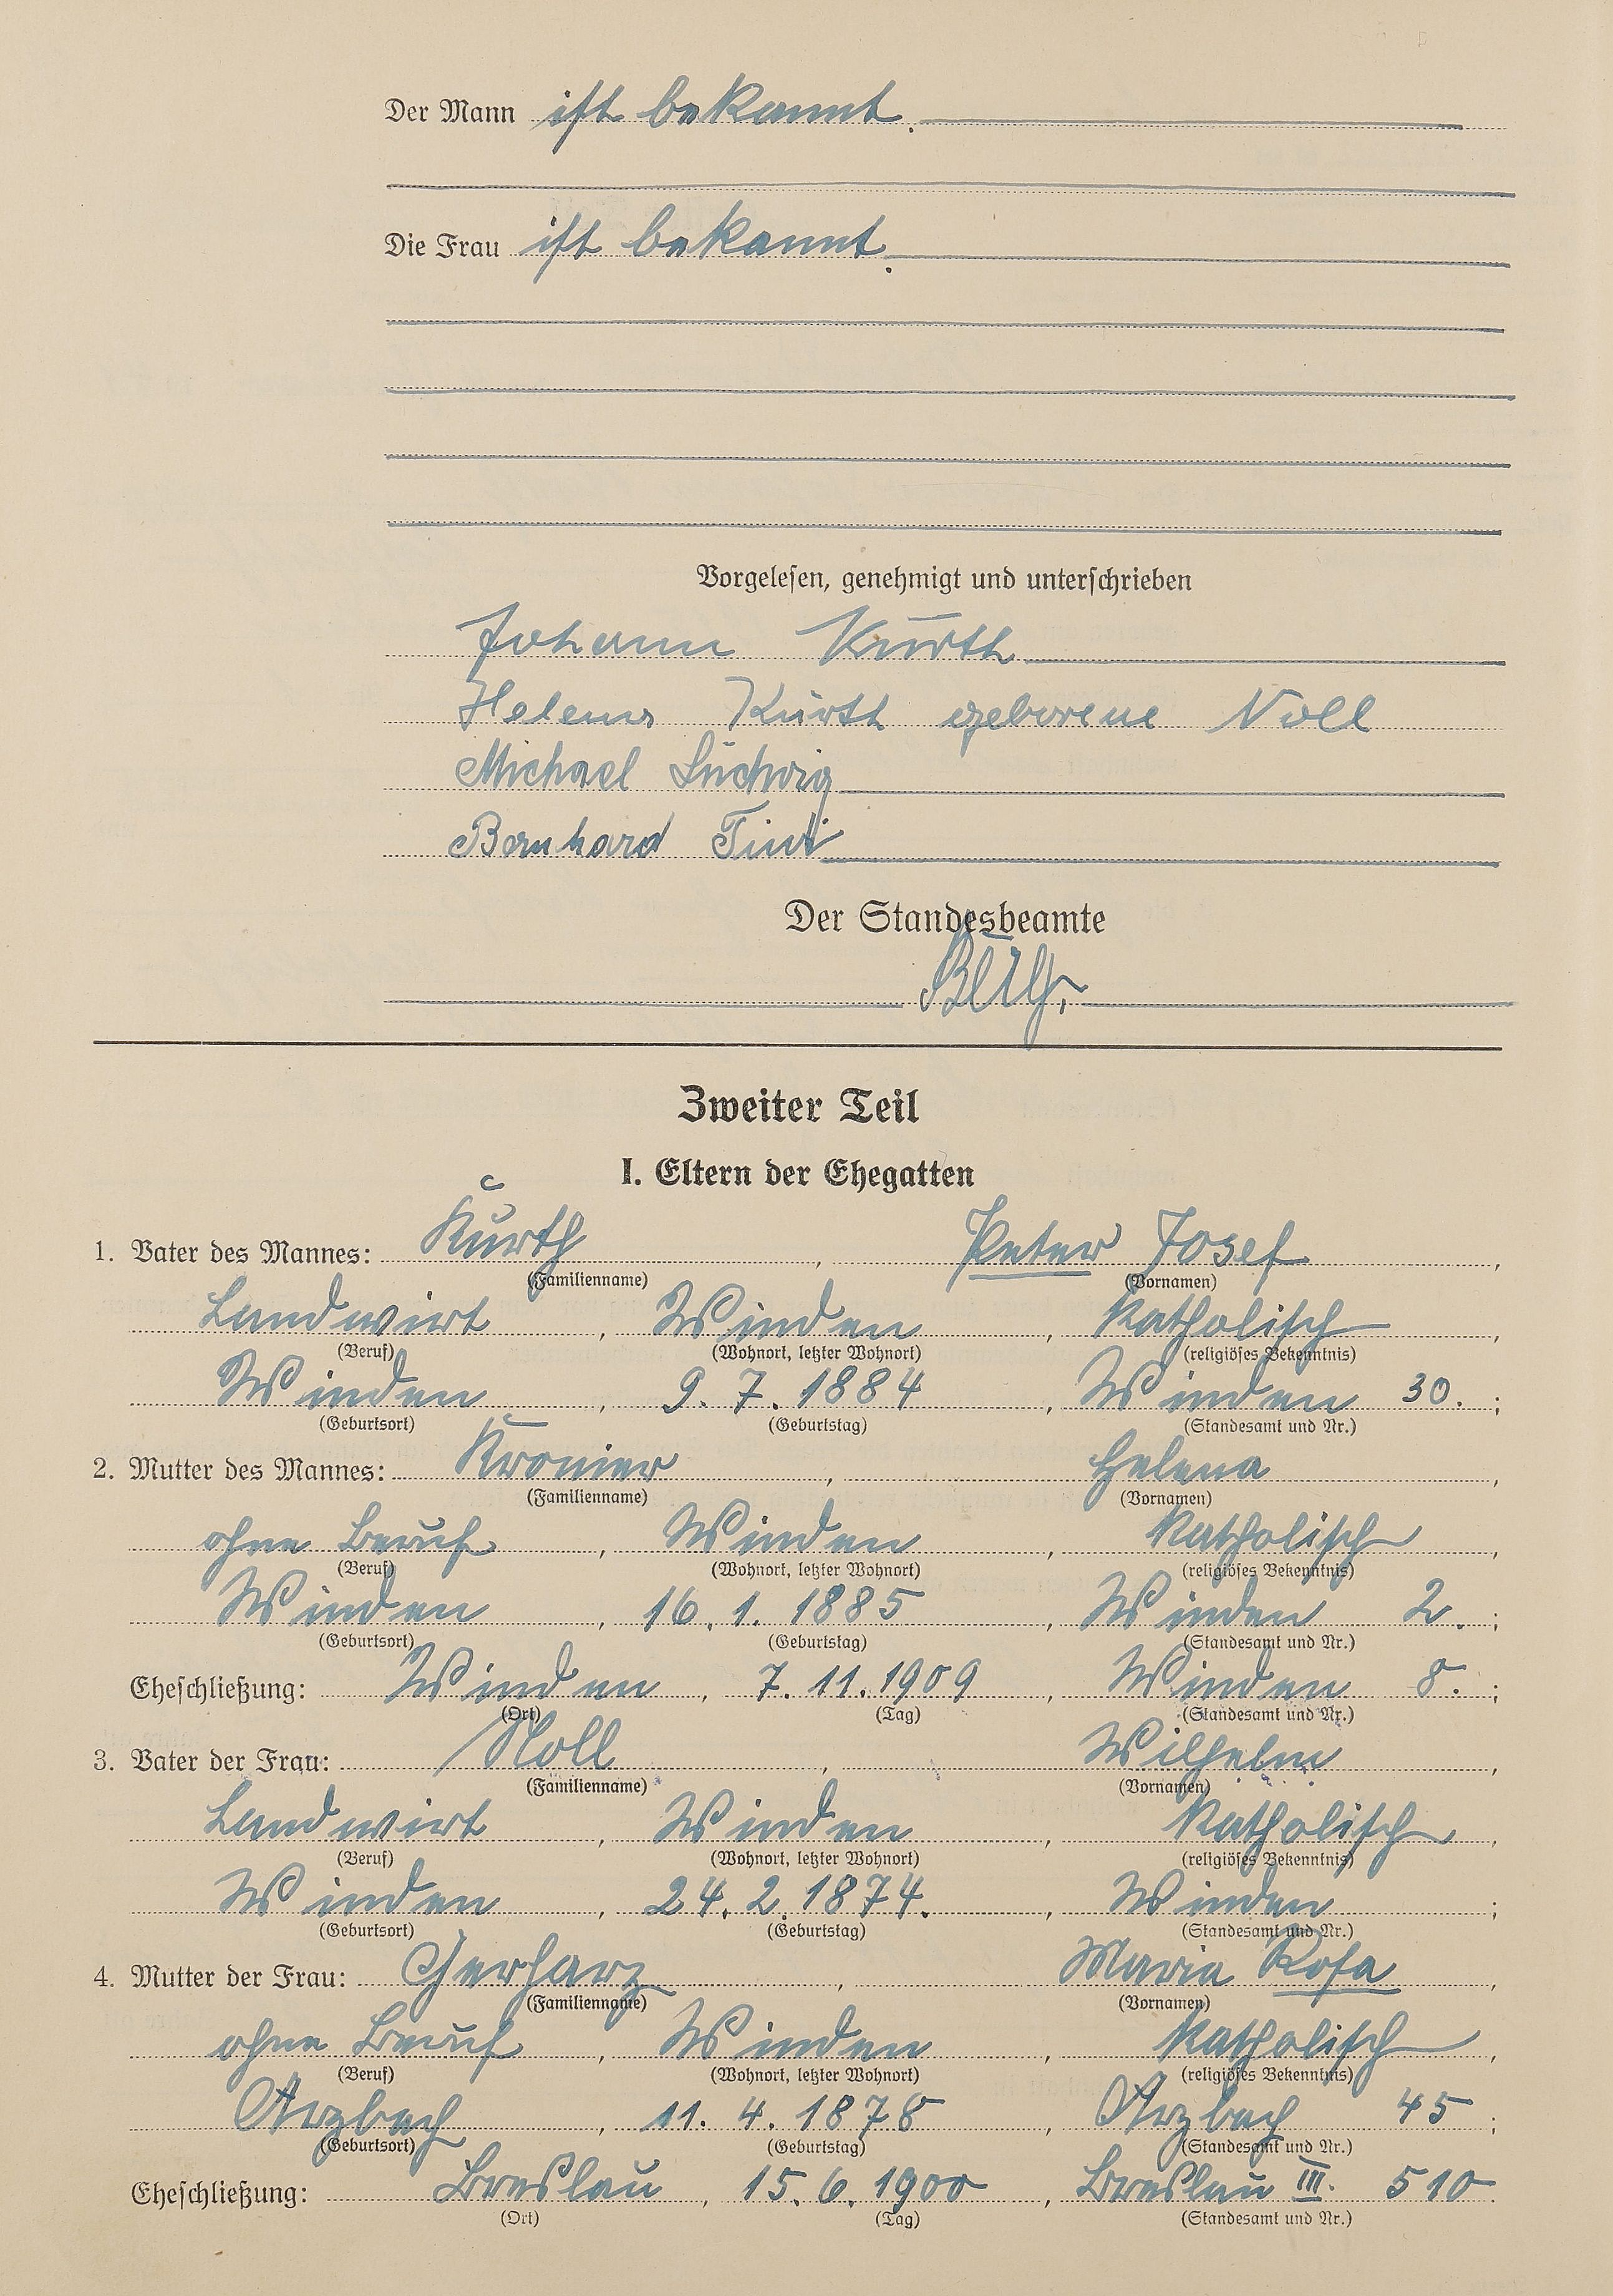 Der Mann ist bekannt.
Die Frau ist bekannt.
Vorgelesen, genehmigt und unterschrieben
Johann Kurth
Helena Kurth geborene Noll
Michael Ludwig
Bernhard
Der Standesbeamte
Zweiter Teil
I. Eltern der Ehegatten
1. Vater des Mannes: Kurth, Peter Josef,
(Familienname) (Vornamen)
Landwirt, Winden, katholisch,
(Beruf) (Wohnort, letzter Wohnort) (religiöses Bekenntnis)
Winden, 9. 7. 1884, Winden 30.;
(Geburtsort) (Geburtstag) (Standesamt und Nr.)
2. Mutter des Mannes: Kronier, Helena,
(Familienname) (Vornamen)
ohne Beruf, Winden, katholisch,
(Beruf) (Wohnort, letzter Wohnort) (religiöses Bekenntnis)
Winden, 16. 1. 1885, Winden 2.;
(Geburtsort) (Geburtstag) (Standesamt und Nr.)
Eheschließung: Winden, 7. 11. 1909, Winden 8.;
(Ort) (Tag) (Standesamt und Nr.)
3. Vater der Frau: Noll, Wilhelm,
(Familienname) (Vornamen)
Landwirt, Winden, katholisch,
(Beruf) (Wohnort, letzter Wohnort) (religiöses Bekenntnis)
Winden, 24. 2. 1874., Winden;
(Geburtsort) (Geburtstag) (Standesamt und Nr.)
4. Mutter der Frau: Gerharz, Maria Rosa,
(Familienname) (Vornamen)
ohne Beruf, Winden, katholisch,
(Beruf) (Wohnort, letzter Wohnort) (religiöses Bekenntnis)
Arzbach, 11. 4. 1878, Arzbach 45;
(Geburtsort) (Geburtstag) (Standesamt und Nr.)
Eheschließung: Breslau, 15. 6. 1900, Breslau III. 510.
(Ort) (Tag) (Standesamt und Nr.)